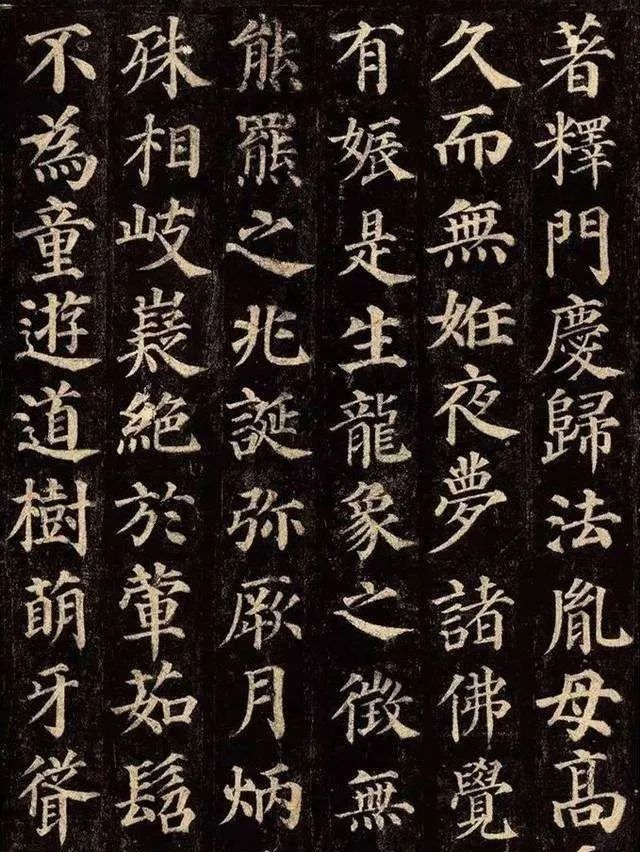 著釋門慶歸法胤母高
久而無姙夜夢諸佛覺
有娠是生龍象之徵無
熊羆之兆誕弥厥月炳
殊相岐嶷絶於葷茹髫
不為童遊道樹萌牙聳